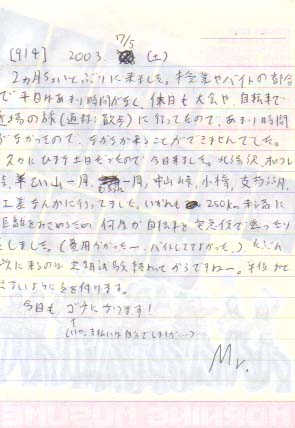 [914] 2003. 17/5 (土)
2ヵ月ちょいぶりに来ました。授業やバイトの都合
で平日はあまり時間がなく、休日も大会や、自転車で
の旅(通称:散歩)に行ってたので、あまり時間
がなかったので、なかなか来ることができませんでした。
久々にひまな土日だったので今日来ました。北海沢、
羊ひい山一周、一周、中山峠、小樽、支笏湖、
などに行ってました。いずれも250km
距離をおさめるため 何度か自転車を宅急便で送ったり
しました。(費用かかったー、バイトしててよかった。)
次に来るのは定期試験終わってからですねー。単位おと
さないように気を付けます。
今日も ゴチになります!
(いや、支払いは自分でしますが…)
Mr.
MORNING MUSUME